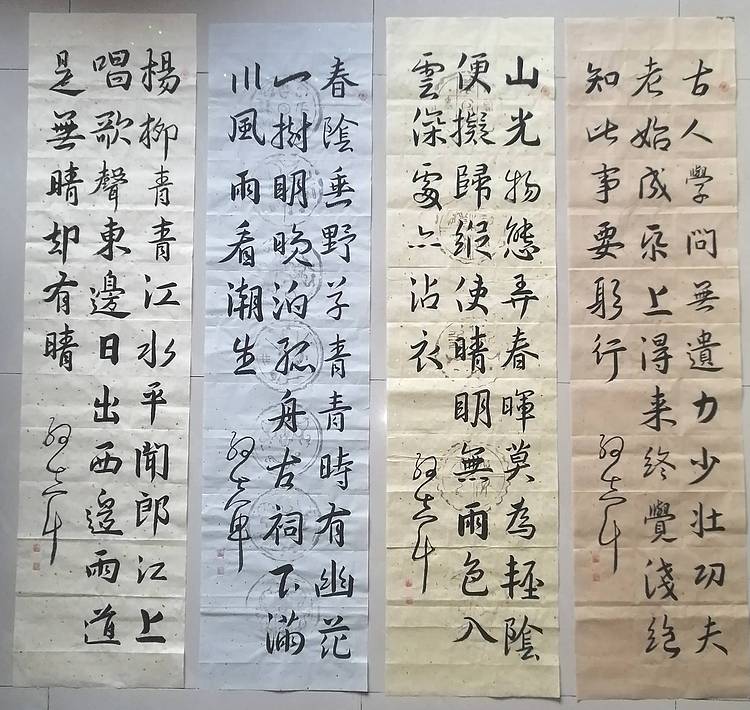 古人學問無遺力少壯功夫
老始成帋上得来終覺淺絶
知此事要躬行
山光物態弄春暉莫為輕陰
便擬歸縱使晴明無雨色入
雲深處亦沾衣
春陰垂野草青青時有幽花
一樹明晚泊孤舟古祠下滿
川風雨看潮生
楊柳青青江水平聞郎江上
唱歌聲東邊日出西邊雨道
是無晴却有晴